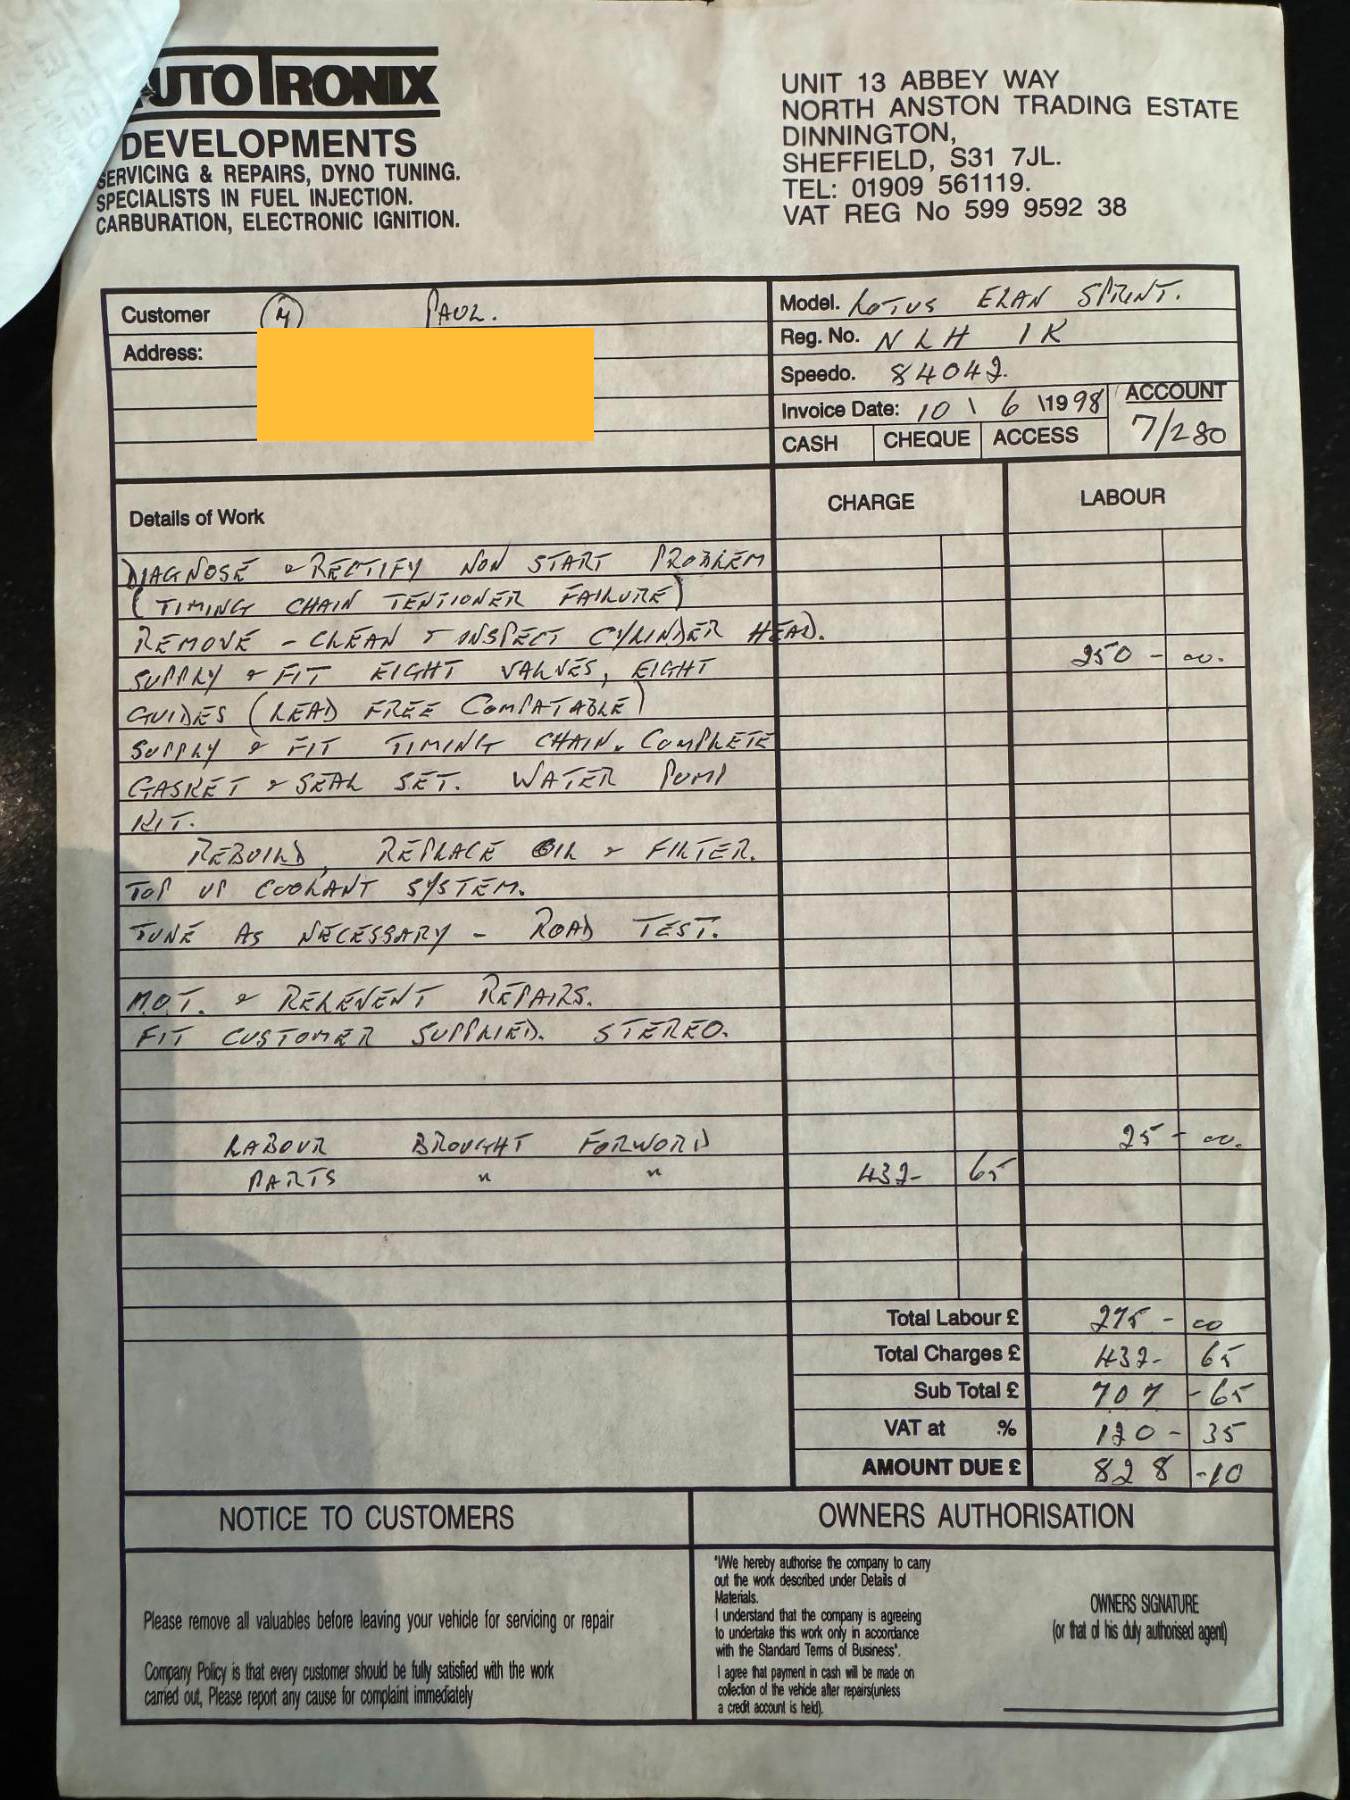 AUTOTRONIX
DEVELOPMENTS
SERVICING & REPAIRS, DYNO TUNING.
SPECIALISTS IN FUEL INJECTION.
CARBURATION, ELECTRONIC IGNITION.
UNIT 13 ABBEY WAY
NORTH ANSTON TRADING ESTATE
DINNINGTON,
SHEFFIELD, S31 7JL.
TEL: 01909 561119.
VAT REG No 599 9592 38
Customer PAUL.
Address:
Model. LOTUS ELAN SPRINT.
Reg. No. NLH 1K
Speedo. 84042.
Invoice Date: 10 \ 6 \1998
ACCOUNT
7/280
CASH CHEQUE ACCESS
Details of Work CHARGE LABOUR
DIAGNOSE & RECTIFY NON START PROBLEM
(TIMING CHAIN TENTIONER FAILURE)
REMOVE - CLEAN & INSPECT CYLINDER HEAD.
SUPPLY & FIT EIGHT VALVES, EIGHT 250 - 00.
GUIDES (LEAD FREE COMPATABLE)
SUPPLY & FIT TIMING CHAIN. COMPLETE
GASKET & SEAL SET. WATER PUMP
KIT.
REBUILD, REPLACE OIL & FILTER.
TOP UP COOLANT SYSTEM.
TUNE AS NECESSARY - ROAD TEST.
M.O.T. & RELEVENT REPAIRS.
FIT CUSTOMER SUPPLIED. STEREO.
LABOUR BROUGHT FORWORD 25 - 00.
PARTS " " 432- 65
Total Labour £ 275 - 00
Total Charges £ 432- 65
Sub Total £ 707 - 65
VAT at % 120 - 35
AMOUNT DUE £ 828 - 10
NOTICE TO CUSTOMERS
Please remove all valuables before leaving your vehicle for servicing or repair
Company Policy is that every customer should be fully satisfied with the work
carried out, Please report any cause for complaint immediately
OWNERS AUTHORISATION
"I/We hereby authorise the company to carry
out the work described under Details of
Materials.
I understand that the company is agreeing
to undertake this work only in accordance
with the Standard Terms of Business".
I agree that payment in cash will be made on
collection of the vehicle after repairs(unless
a credit account is held).
OWNERS SIGNATURE
(or that of his duly authorised agent)